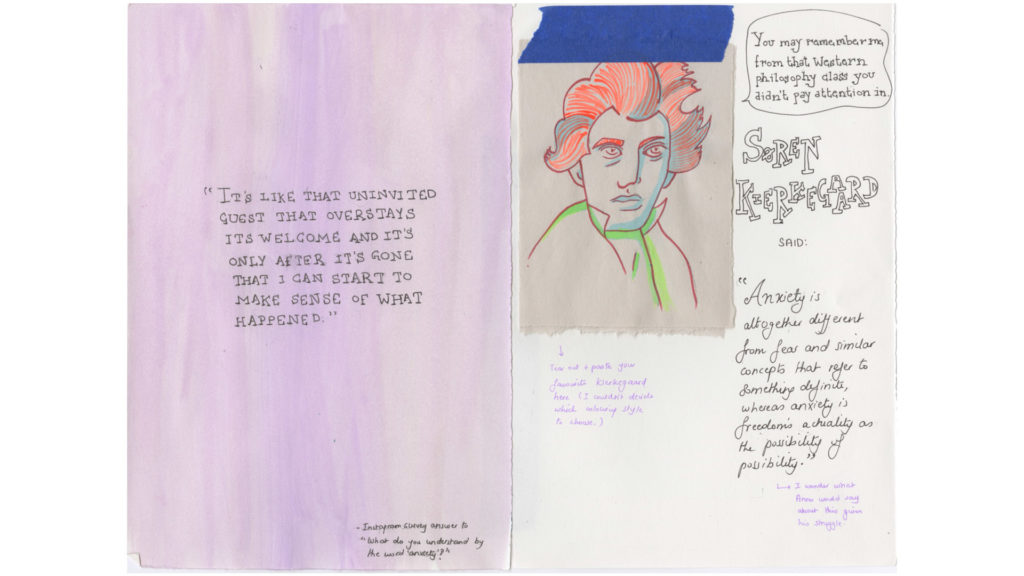 "IT'S LIKE THAT UNINVITED
GUEST THAT OVERSTAYS
ITS WELCOME AND IT'S
ONLY AFTER IT'S GONE
THAT I CAN START TO
MAKE SENSE OF WHAT
HAPPENED."
- Instagram survey answer to
"What do you understand by
the word 'anxiety'?"
You may remember me
from that Western
philosophy class you
didn't pay attention in.
SØREN
KIERKEGAARD
SAID:
"Anxiety is
altogether different
from fear and similar
concepts that refer to
something definite,
whereas anxiety is
freedom's actuality as
the possibility of
possibility."
↳ I wonder what
would say
about this given
his struggle.
↓
Tear out + paste your
favourite Kierkegaard
here (I couldn't decide
which colouring style
to choose.)